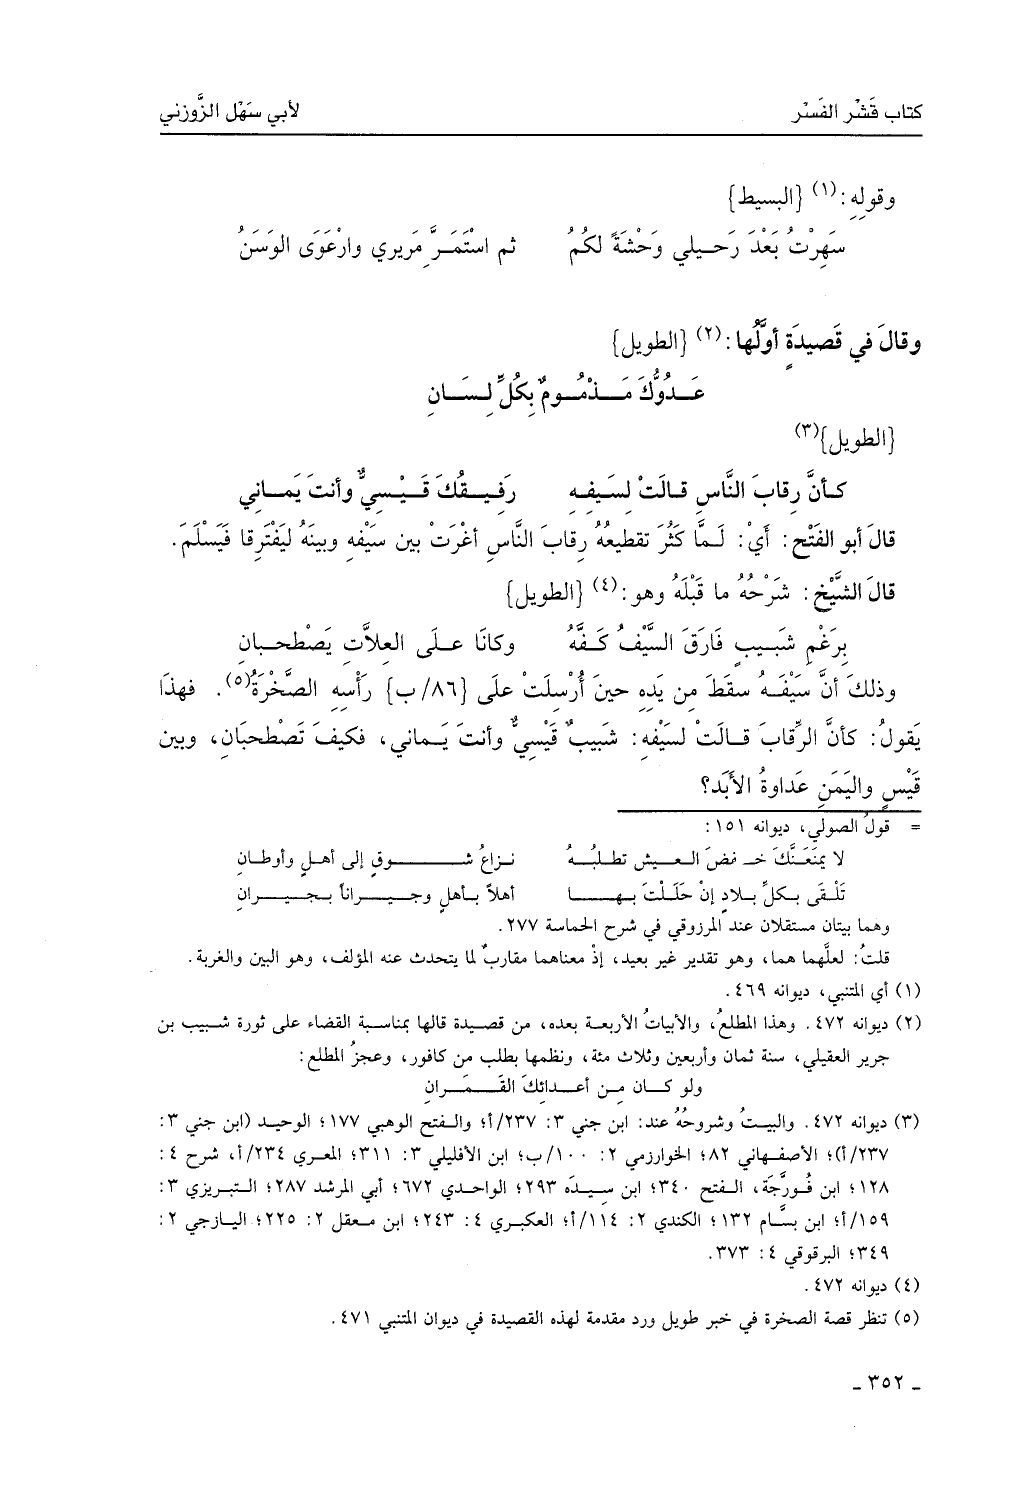 كتاب قَشْر الفَسْر لأبي سَهْل الزَّوزني
وقولِهِ:(١) {البسيط}
سَهِرْتُ بَعْدَ رَحـيلي وَحْشَةً لكُمُ ثم اسْتَمَـرَّ مَريري وارْعَوَى الوَسَنُ
وقالَ في قَصيدَةٍ أوَّلُها:(٢) {الطويل}
عَـدُوُّكَ مَـذْمُـومٌ بِكُلِّ لِـسَـانِ
{الطويل}(٣)
كـأنَّ رِقابَ النَّاسِ قـالَتْ لسَيفِهِ رَفـيـقُكَ قَـيْـسيٌّ وأنتَ يَمـاني
قالَ أبو الفَتْحِ: أَيْ: لَـمَّا كَثُرَ تقطيعُهُ رِقابَ النَّاسِ أغْرَتْ بين سَيْفِهِ وبينَهُ ليَفْتَرِقا فَيَسْلَمَ.
قالَ الشَّيْخ: شَرْحُهُ ما قَبْلَهُ وهو:(٤) {الطويل}
بِرَغْمِ شَبـيـبٍ فَارَقَ السَّيْفُ كَـفَّهُ وكانَا علـَى العِلاَّتِ يَصْطَحبـانِ
وذلكَ أنَّ سَيْفَـهُ سقَطَ من يَدِهِ حينَ أُرْسِلَتْ علَى {٨٦/ب} رَأْسِهِ الصَّخْرَةُ(٥). فهذَا
يَقولُ: كأنَّ الرِّقابَ قـالَتْ لسَيْفِهِ: شَبيبٌ قَيْسِيٌّ وأنتَ يَـماني، فكيفَ تَصْطَحبَانِ، وبين
قَيْسٍ واليَمَنِ عَداوةُ الأَبَد؟
= قولُ الصولي، ديوانه ١٥١:
لا يمنَعَـنَّكَ خـفضَ العـيش تطلـبُـهُ نـزاعُ شـوقٍ إلى أهـلٍ وأوطـانِ
تَلْـقَى بـكلِّ بـلادٍ إنْ حَلَلْتَ بـهـا أهلاً بـأهلٍ وجـيـراناً بـجيـرانِ
وهما بيتان مستقلان عند المرزوقي في شرح الحماسة ٢٧٧.
قلتُ: لعلَّهما هما، وهو تقدير غير بعيد، إذْ معناهما مقاربٌ لما يتحدث عنه المؤلف، وهو البين والغربة.
(١) أي المتنبي، ديوانه ٤٦٩.
(٢) ديوانه ٤٧٢. وهذا المطلعُ، والأبياتُ الأربعة بعده، من قصيدة قالها بمناسبة القضاء على ثورة شبيب بن
جرير العقيلي، سنة ثمان وأربعين وثلاث مئة، ونظمها بطلب من كافور، وعجزُ المطلع:
ولو كـان مِـن أعـدائِكَ القَـمَـرانِ
(٣) ديوانه ٤٧٢. والبيتُ وشروحُهُ عند: ابن جني ٣: ٢٣٧/أ؛ والفتح الوهبي ١٧٧؛ الوحيد (ابن جني ٣:
٢٣٧/أ)؛ الأصفهاني ٨٢؛ الخوارزمي ٢: ١٠٠/ب؛ ابن الأفليلي ٣: ٣١١؛ المعري ٢٣٤/أ، شرح ٤:
١٢٨؛ ابن فُورَّجَة، الفتح ٣٤٠؛ ابن سِيدَه ٢٩٣؛ الواحدي ٦٧٢؛ أبي المرشد ٢٨٧؛ التبريزي ٣:
١٥٩/أ؛ ابن بسَّام ١٣٢؛ الكندي ٢: ١١٤/أ؛ العكبري ٤: ٢٤٣؛ ابن معقل ٢: ٢٢٥؛ اليازجي ٢:
٣٤٩؛ البرقوقي ٤: ٣٧٣.
(٤) ديوانه ٤٧٢.
(٥) تنظر قصة الصخرة في خبر طويل ورد مقدمة لهذه القصيدة في ديوان المتنبي ٤٧١.
- ٣٥٢ -